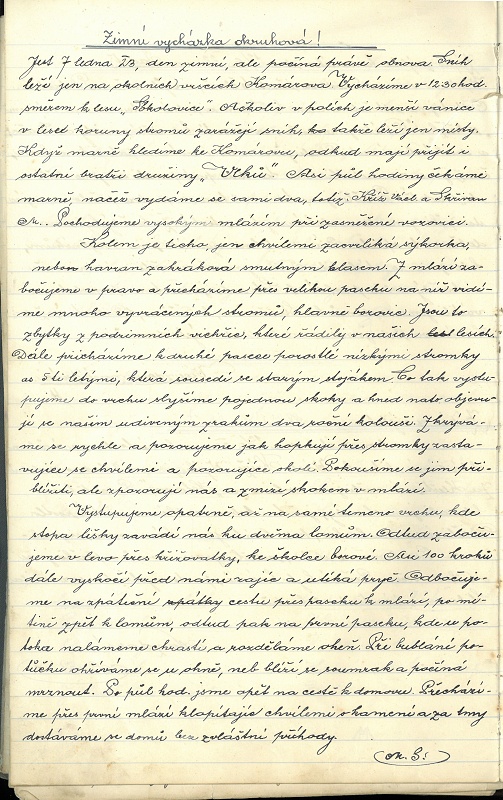 Zimní vycházka okruhová!
Jest 7 ledna 23, den zimní, ale počíná právě obnova. Sníh
leží jen na okolních vršcích Komárova. Vycházíme v 12·30 hod.
směrem k lesu „Sokolovice". Ačkoliv v polích je menší vánice
v lese koruny stromů zarážejí sníh, takže leží jen místy.
Když marně hledíme ke Komárovu, odkud mají přijít i
ostatní bratři družiny „Vlků". Asi půl hodiny čekáme
marně, načež vydáme se sami dva, totiž Kříž a Skřivan
M. Pochodujeme vysokým mlázím při zasněžené vozovici.
Kolem je ticho, jen chvílemi zacviliká sýkorka,
nebo havran zakráková smutným hlasem. Z mlází za-
bočujeme v pravo a přecházíme přes velikou paseku na níž vidí-
me mnoho vyvrácených stromů, hlavně borovic. Jsou to
zbytky z podzimních vichřic, které řádily v našich lesích.
Dále přicházíme k druhé pasece porostlé nízkými stromky
as 5ti letými, která sousedí se starým stojákem. Co tak vystu-
pujeme do vrchu slyšíme pojednou skoky a hned nato objevu-
jí se našim udiveným zrakům dva roční kolouši. Zkrývá-
me se rychle a pozorujeme jak hopkují přes stromky zasta-
vujíce se chvílemi a pozorujíce okolí. Pokoušíme se jim při-
blížiti, ale zpozorují nás a zmizí skokem v mlází.
Vystupujeme opatrně, až na samé temeno vrchu, kde
stopa lišky zavádí nás ku dvěma lomům. Odtud zaboču-
jeme v levo přes křižovatky, ke školce borové. Asi 100 kroků
dále vyskočí před námi zajíc a utíká pryč. Odbočuje-
me na zpáteční zpátky cestu přes paseku k mlází, po mý-
tině zpět k lomům, odtud pak na první paseku, kde u po-
toka nalámeme chrastí a rozděláme oheň. Při bublání po-
tůčku ohříváme se u ohně, neb blíží se soumrak a počíná
mrznout. Po půl hod. jsme opět na cestě k domovu. Přechází-
me přes první mlází klopítajíc chvílemi o kamení a za tmy
dostáváme se domů bez zvláštní příhody.
M. S.